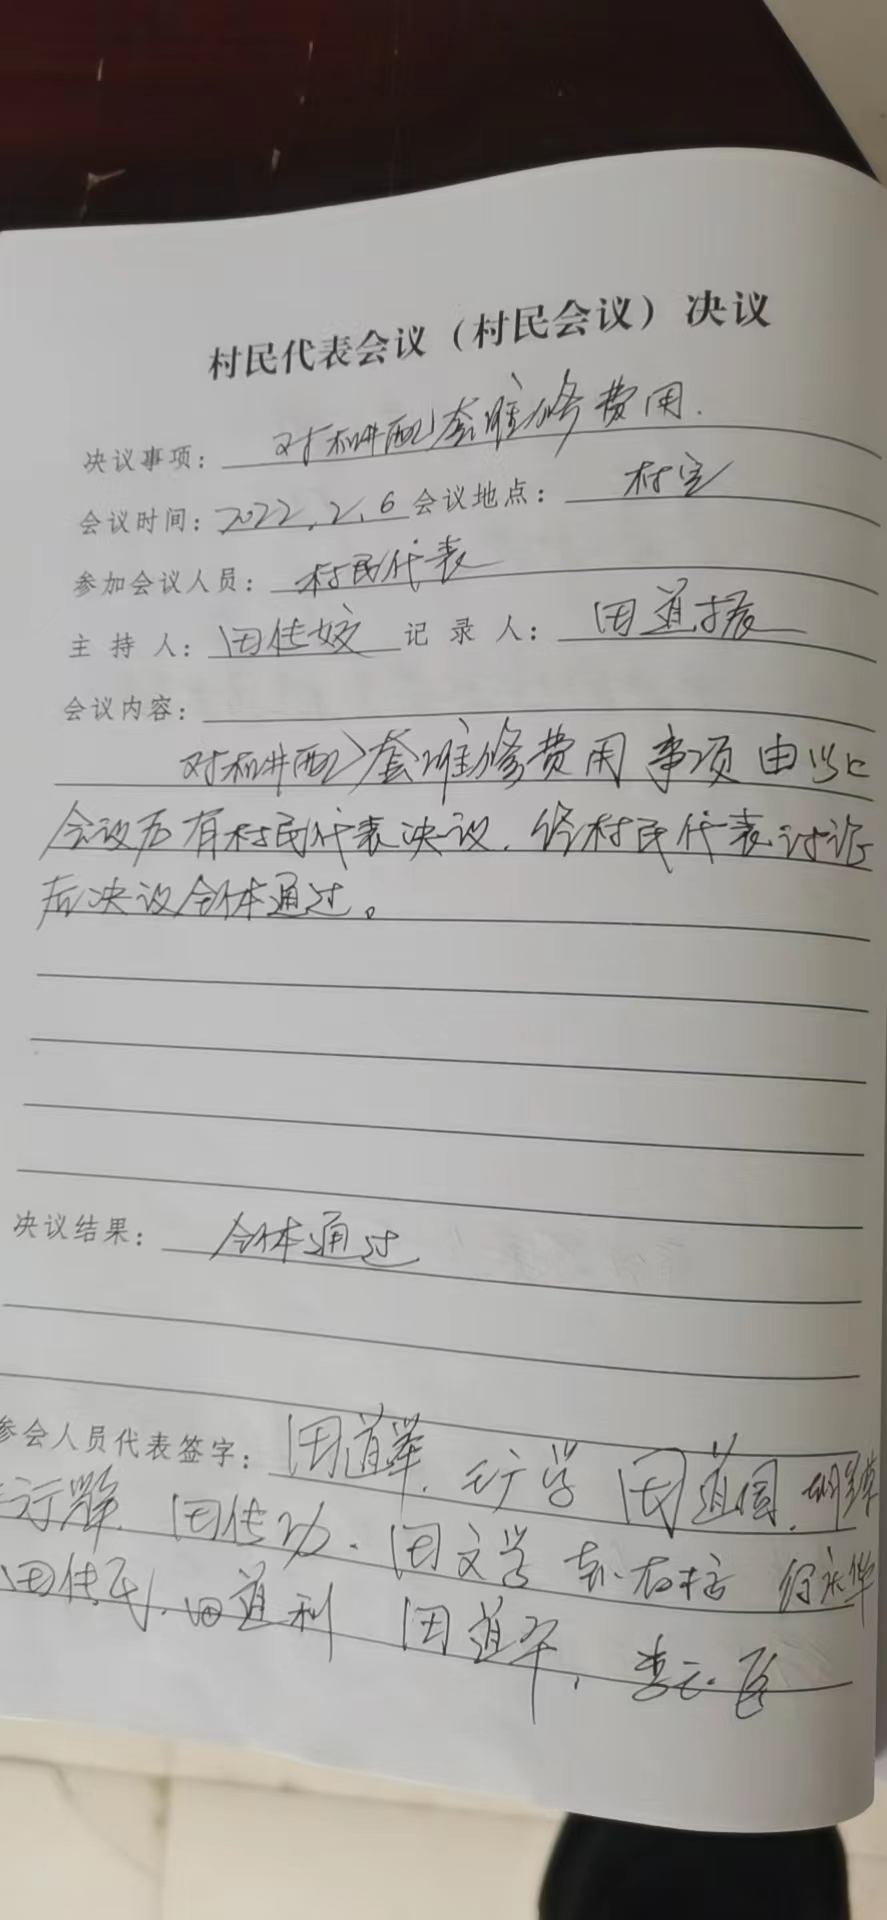 村民代表会议（村民会议）决议
决议事项： 对机井配套维修费用.
会议时间：2022.2.6 会议地点： 村室
参加会议人员： 村民代表
主 持 人：田传姣 记 录 人： 田道振
会议内容：
对机井配套维修费用事项由
会议后有村民代表决议.经村民代表讨论
后决议全体通过。
决议结果： 全体通过
参会人员代表签字： 田道举. 田道国.
田传功. 田文学
田传民. 田道利 田道平. 李云